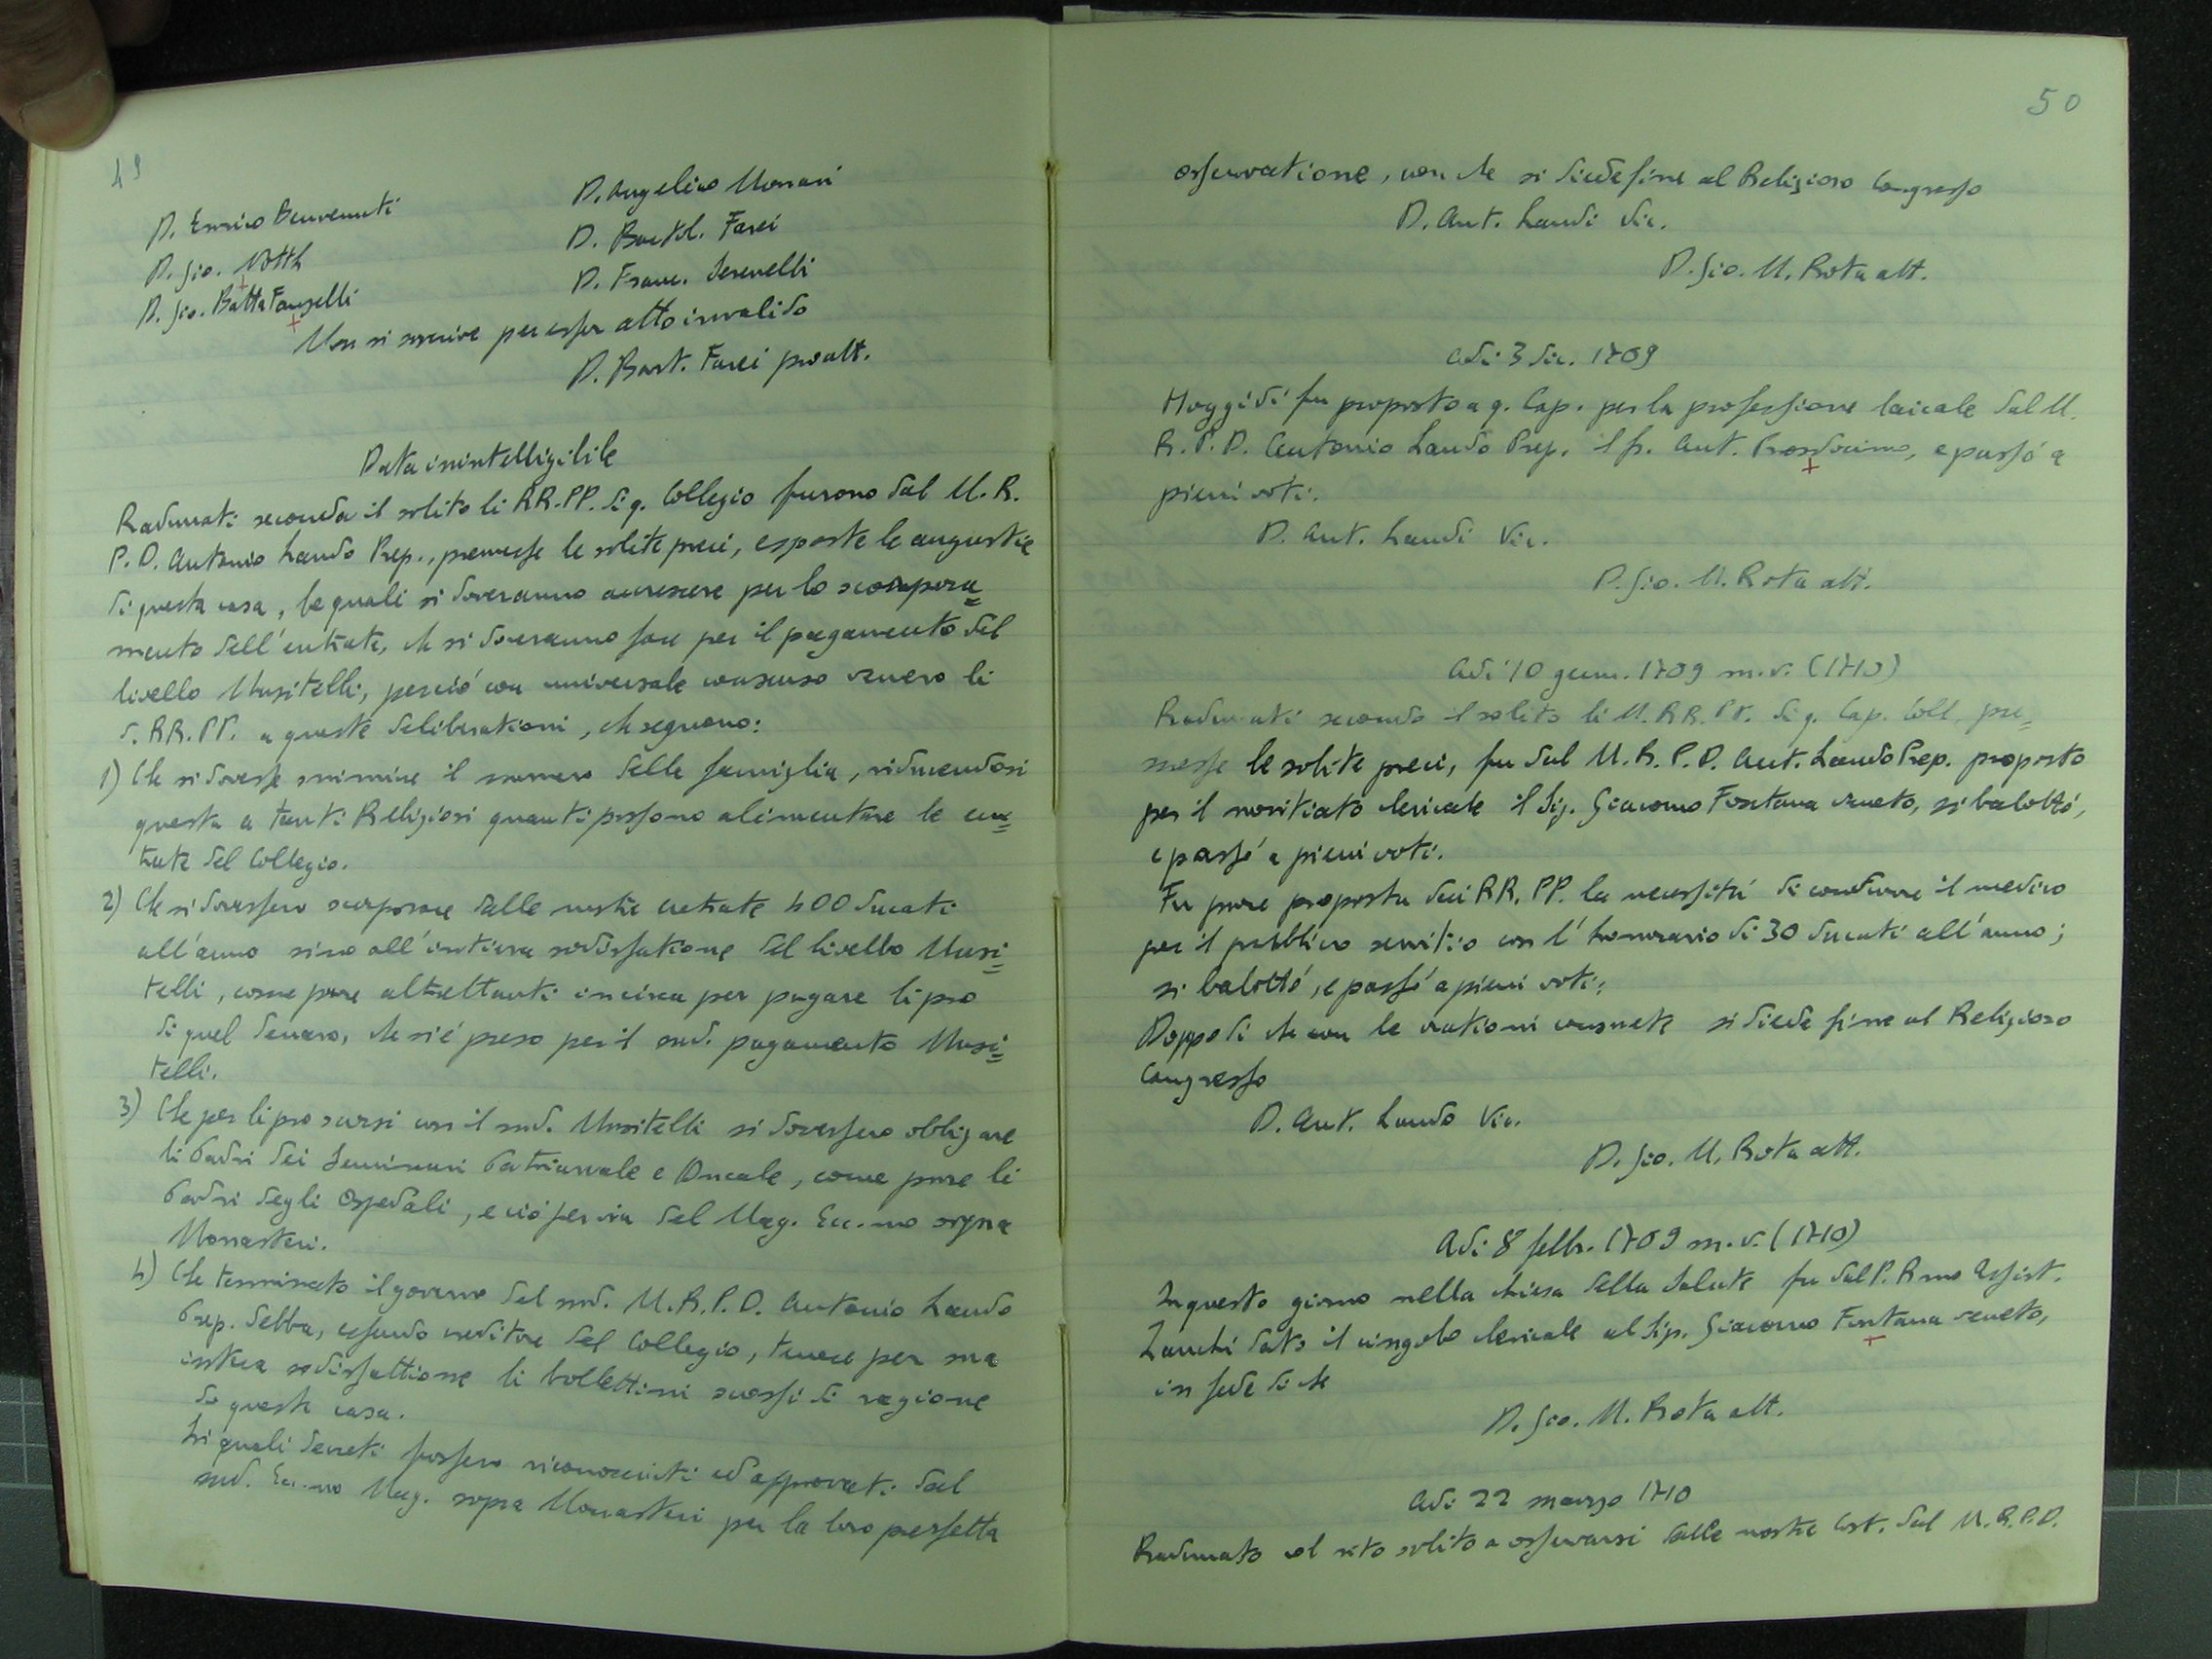 49
D. Enrico Benvenuti
D. Gio. Votth
D. Gio. Batta Fanzelli
D. Angelico Monari
D. Bartol. Farei
D. Franc. Serenelli
Non si scrive per esser atto invalido
D. Bart. Farei proatt.
Data inintelligibile
Radunati secondo il solito li RR.PP. di q. Collegio furono dal M.R.
P.D. Antonio Lando Prep., premesse le solite preci, esposte le angustie
di questa casa, le quali si doveranno accrescere per lo scorpora=
mento dell'entrate, che si doveranno fare per il pagamento del
livello Musitelli, perciò con universale consenso venero li
d. RR.PP. a queste deliberationi, che seguono:
1) Che si dovesse sminuire il numero della famiglia, riducendosi
questa a tanti Religiosi quanti possono alimentare le en=
trate del Collegio.
2) Che si dovessero scorporare dalle nostre entrate 400 ducati
all'anno sino all'intiera sodisfatione del livello Musi=
telli, come pure altrettanti incirca per pagare li pro
di quel denaro, che si é preso per il sud. pagamento Musi=
telli.
3) Che per li pro scorsi con il sud. Musitelli si dovessero obligare
li Padri dei Seminari Patriarcale e Ducale, come pure li
Padri degli Ospedali, e ciò per via del Mag. Ecc.mo sopra
Monasteri.
4) Che terminato il governo del sud. M.R.P.D. Antonio Lando
Prep. debba, essendo creditore del Collegio, tenere per sua
intera sodisfattione li bollettini scossi di ragione
di questa casa.
Li quali decreti fossero riconosciuti ed approvati dal
sud. Ecc.mo Mag. sopra Monasteri per la loro perfetta
50
osservatione, con che si diede fine al Religioso Congresso
D. Ant. Landi Vic.
D. Gio. M. Rota att.
Adi 3 dic. 1709
Hoggidí fu proposto a q. Cap. per la professione laicale dal M.
R.P.D. Antonio Lando Prep. il fr. Ant. Prosdocimo, e passó a
pieni voti.
D. Ant. Landi Vic.
D. Gio. M. Rota att.
Adi 10 genn. 1709 m.v. (1710)
Radunati secondo il solito li M.RR.PP. di q. Cap. Coll. pre=
messe le solite preci, fu dal M.R.P.D. Ant. Lando Prep. proposto
per il novitiato clericale il Sig. Giacomo Fontana veneto, si balottó,
e passó a pieni voti.
Fu pure proposta dei RR.PP. la necessitá di condurre il medico
per il pubblico servitio con l'honorario di 30 ducati all'anno;
si balottó, e passó a pieni voti.
Doppo di che con le orationi consuete si diede fine al Religioso
Congresso
D. Ant. Lando Vic.
D. Gio. M. Rota att.
Adi 8 febb. 1709 m.v. (1710)
In questo giorno nella chiesa della Salute fu dal P. Rmo Assist.
Zanchi dato il cingolo clericale al Sig. Giacomo Fontana veneto,
in fede di che
D. Gio. M. Rota att.
Adi 22 marzo 1710
Radunato col rito solito a osservarsi dalle nostre Cost. dal M.R.P.D.